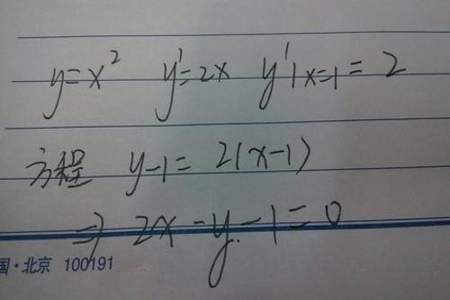 y=x² y'=2x y'|x=1=2
方程 y-1=2(x-1)
⇒ 2x-y-1=0
国·北京 100191